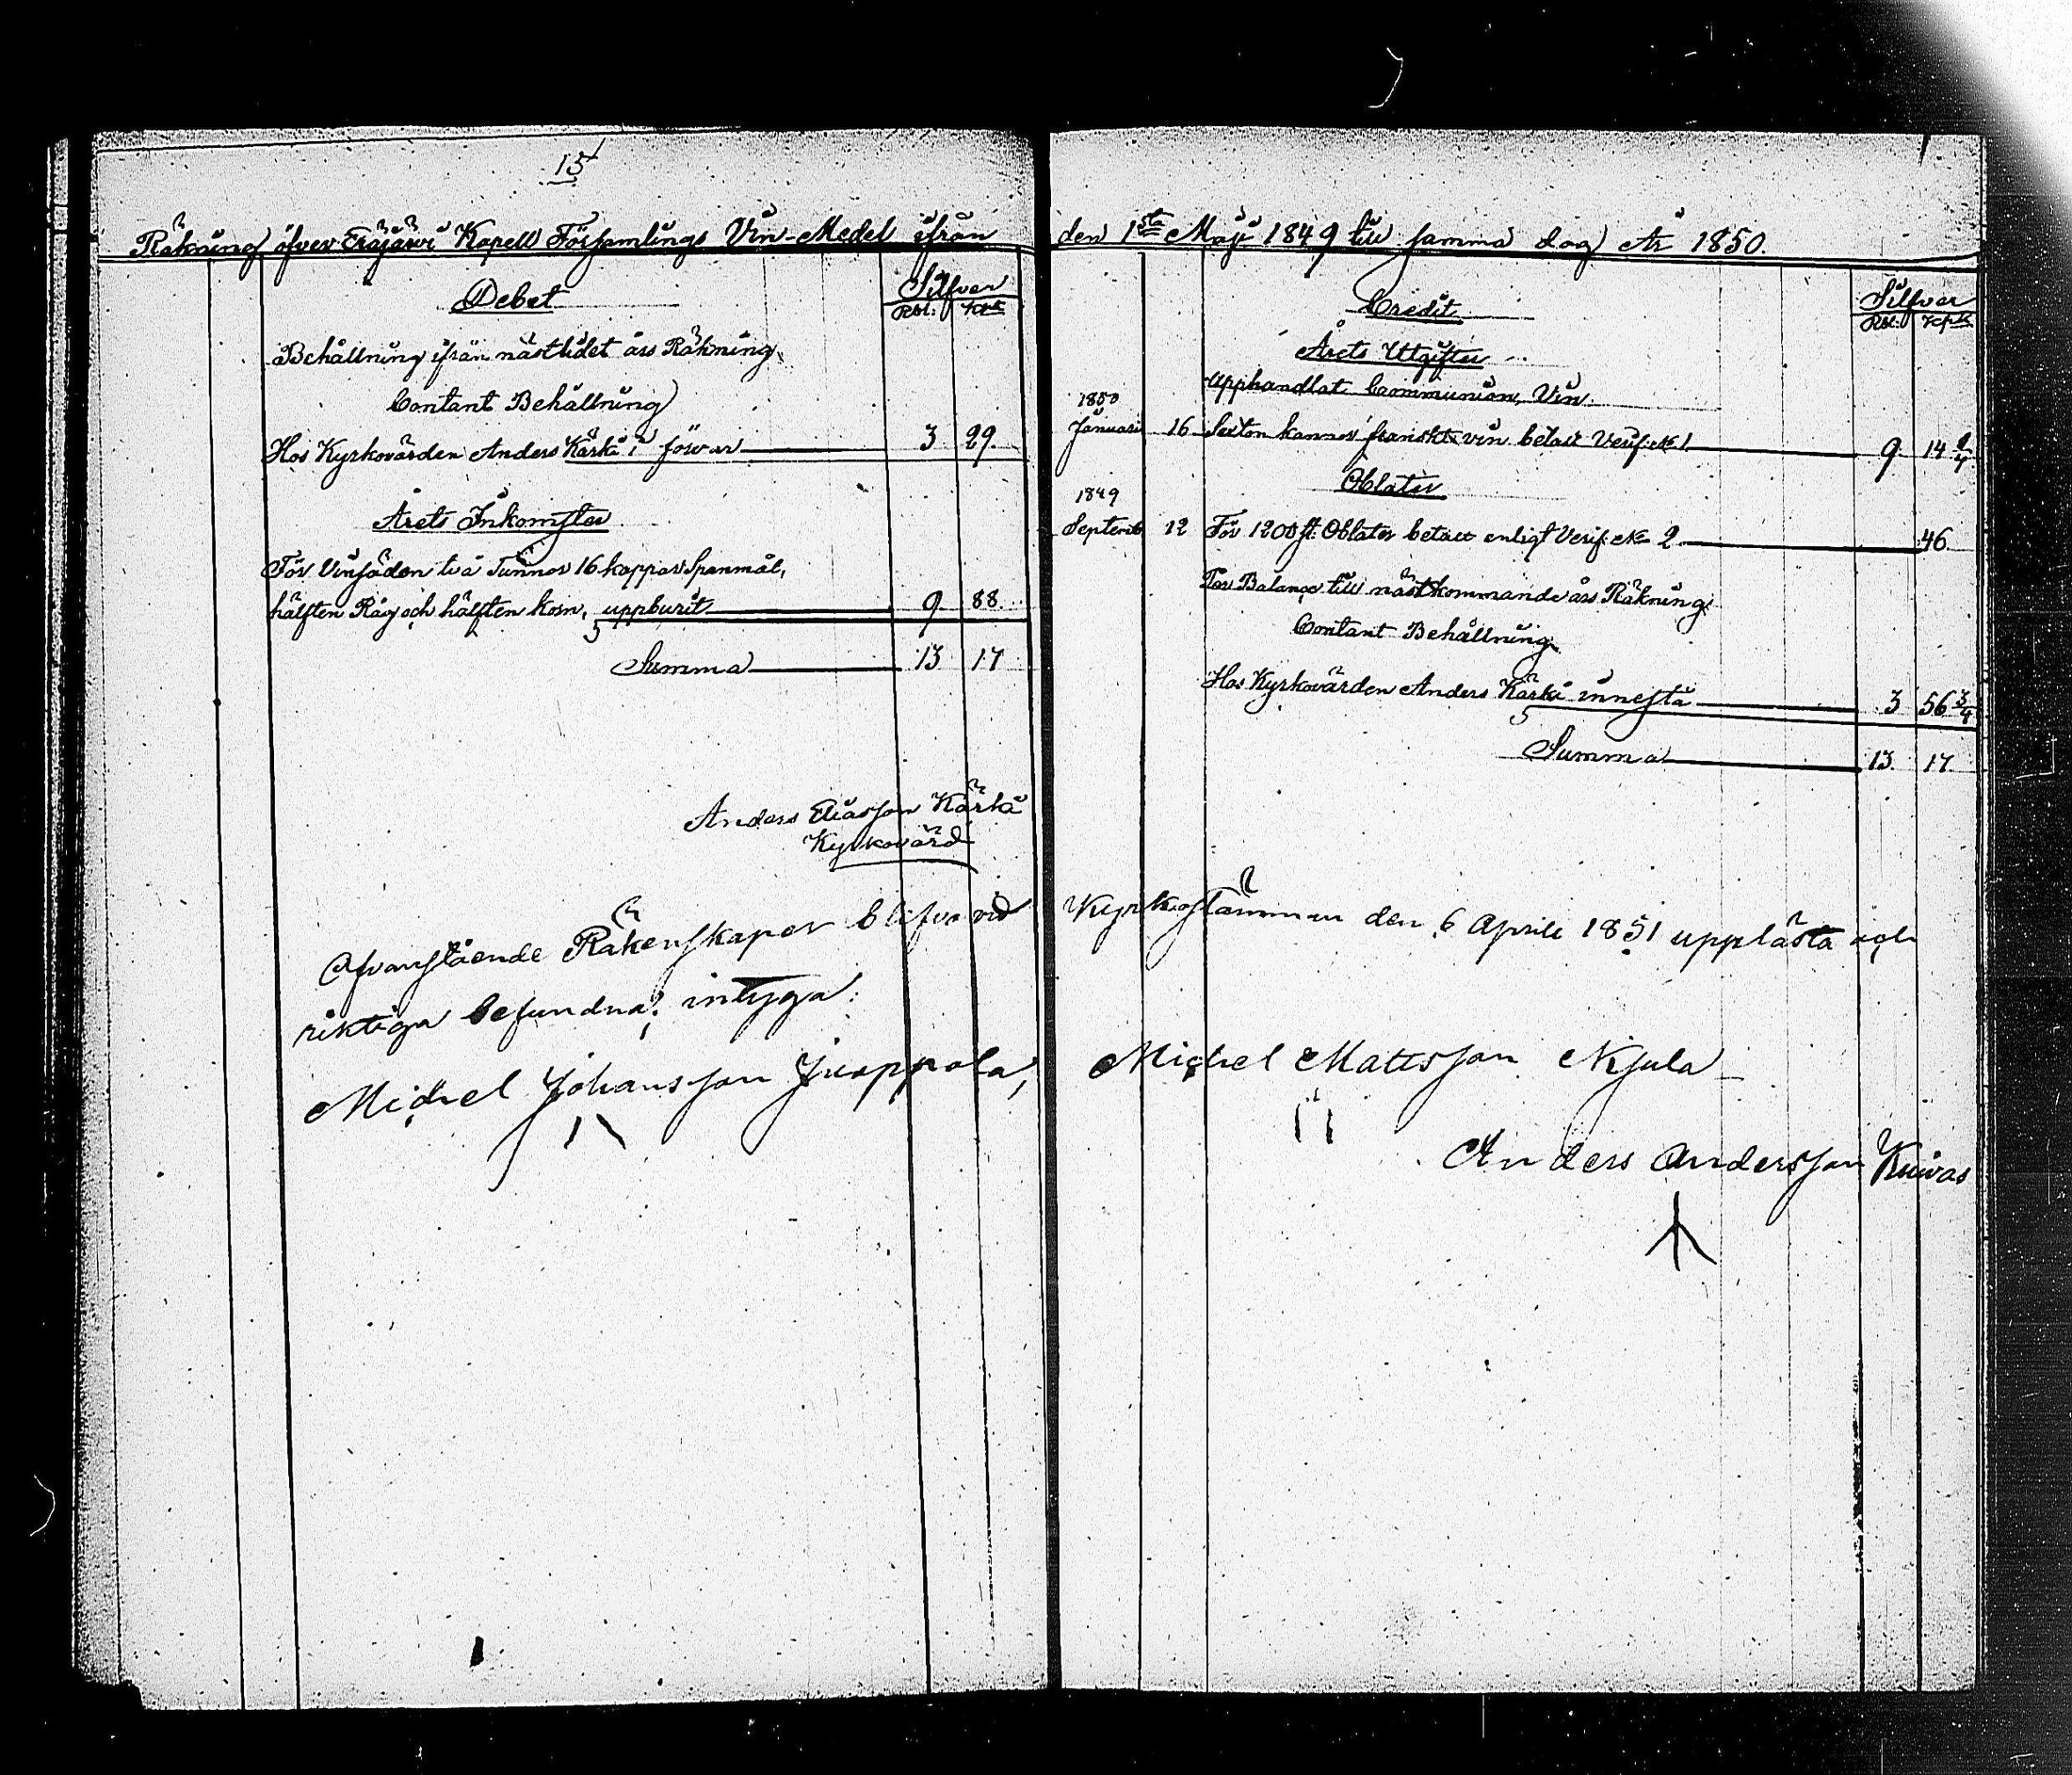 15
Räkning öfver Eräjärvi Kapell Församlings Vin-Medel ifrån
Debet
Silfver
Rbl. Kpk
Behållning ifrån nästlidet års Räkning.
Contant Behållning
Hos Kyrkovärden Anders Kärki i förvar 3 29.
Årets Inkomster
För Vinsäden två Tunnor 16 kappar Spanmål,
hälften Råg och hälften korn, uppburit 9 88.
Summa 13 17
Anders Eliasson Kärki
Kyrkovärd
den 1sta Maji 1849 till samma dag År 1850.
Credit
Silfver
Rbl. Kpk
Årets Utgifter
Upphandlat Communion Vin.
1850
Januari 16 Sexton kannor franskt vin betalt Verif. No 1. 9. 14 1/4
Oblater
1849
Septemb 12 För 1200 st. Oblater betalt enligt Verif. No 2 46.
För Balance till nästkommande års Räkning.
Contant Behållning
Hos Kyrkovärden Anders Kärki innestå 3 56 3/4
Summa 13. 17.
Ofvanstående Räkenskaper blifva vid Kyrkostämman den 6 Aprill 1851 upplästa och
riktiga befundna; intyga:
Michel Johansson Juoppola, Michel Matsson Njula
Anders Andersson Kuivas